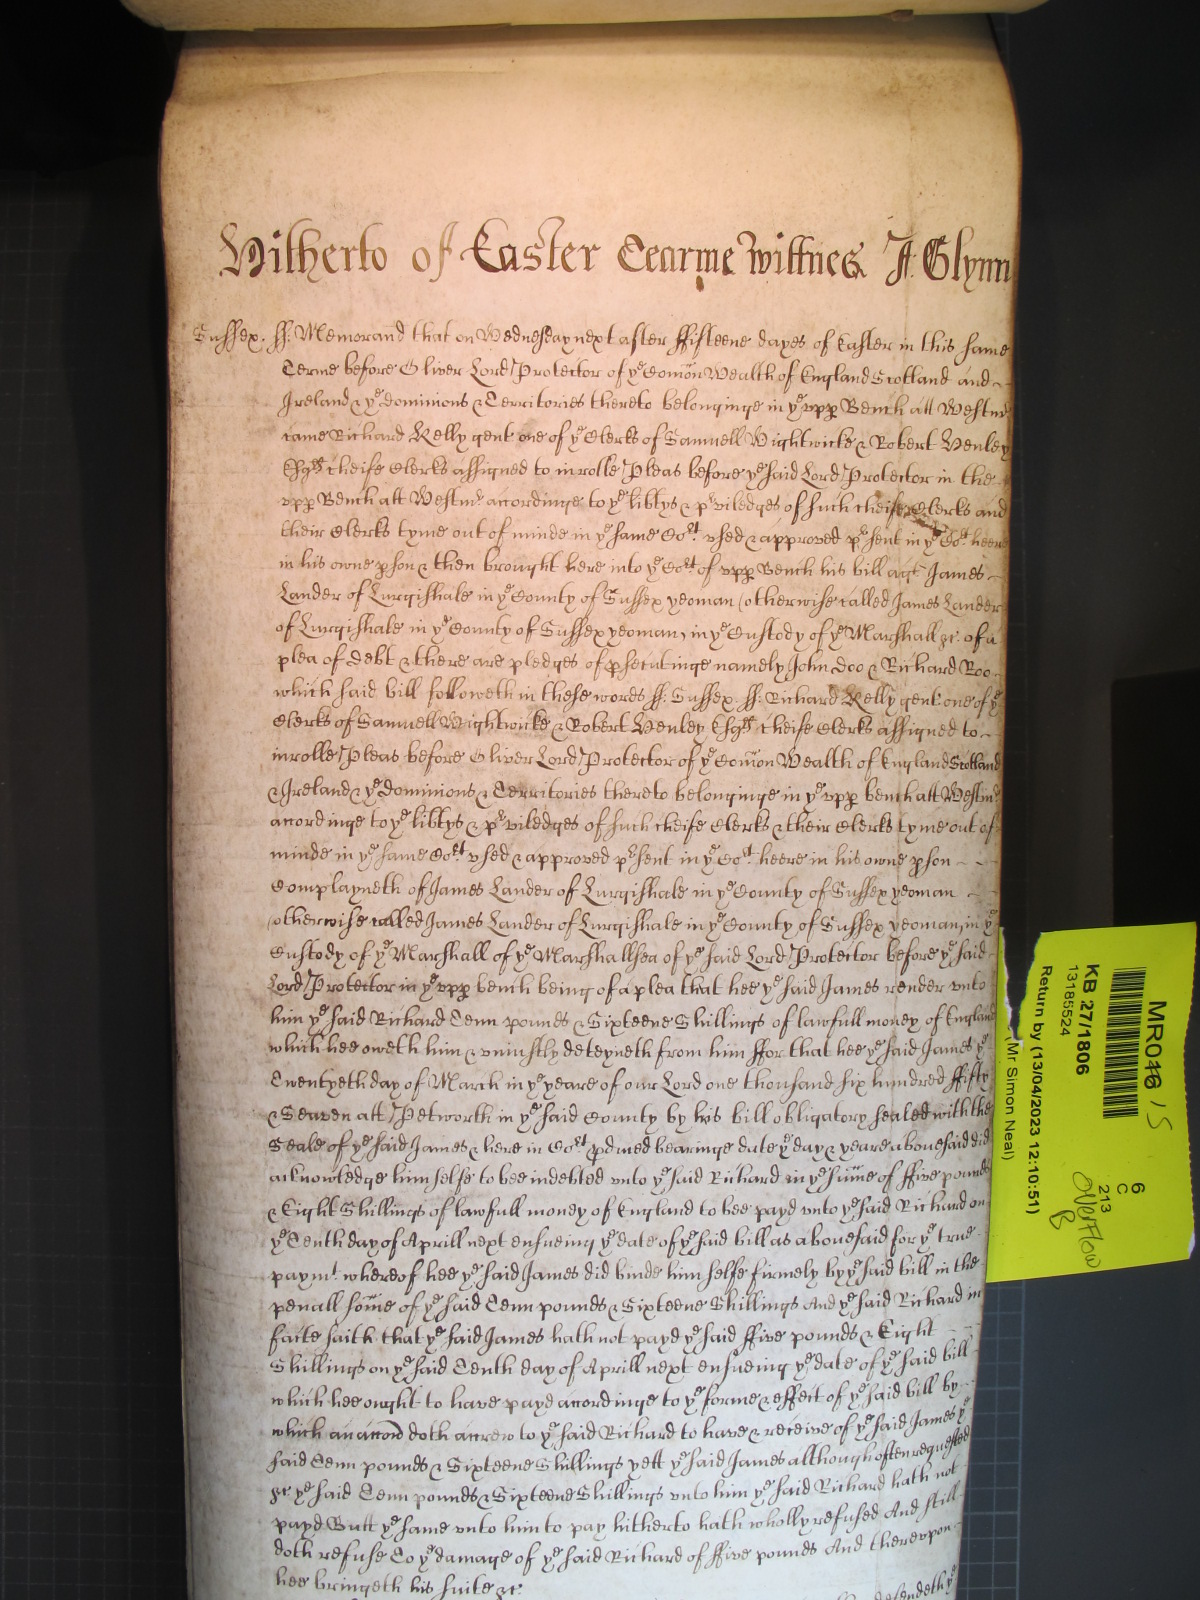 Hitherto of Easter Tearme wittnes J. Glynn
Sussex. ss. Memorand that on Wednesday next after ffifteene dayes of Easter in this same
Terme before Oliver Lord Protector of ye Comon Wealth of England Scotland and
Ireland & ye dominions & Territories thereto belonginge in ye vpp Bench att Westmr
came Richard Kelly gent one of ye Clerks of Samuell Wightwicke & Robert Henley
Esqrs cheife Clerks assigned to inrolle Pleas before ye said Lord Protector in the
vpp Bench att Westmr accordinge to ye libtys & priviledges of such cheife Clerks and
their Clerks tyme out of minde in ye same Cort vsed & approved prsent in ye Cort heere
in his owne pson & then brought here into ye Cort of vpp Bench his bill agt James
Lander of Lurgishale in ye County of Sussex yeoman (otherwise called James Lander
of Lurgishale in ye County of Sussex yeoman) in ye Custody of ye Marshall &c. of a
plea of debt & there are pledges of psecutinge namely John Doo & Richard Roo
which said bill followeth in these words ss. Sussex. ss. Richard Kelly gent. one of ye
Clerks of Samuell Wightwicke & Robert Henley Esqrs cheife Clerks assigned to
inrolle Pleas before Oliver Lord Protector of ye Comon Wealth of England Scotland
& Ireland & ye dominions & Territories thereto belonginge in ye vpp bench att Westmr
accordinge to ye libtys & priviledges of such cheife Clerks & their Clerks tyme out of
minde in ye same Cort vsed & approved prsent in ye Cort heere in his owne pson
Complayneth of James Lander of Lurgishale in ye County of Sussex yeoman
(otherwise called James Lander of Lurgishale in ye County of Sussex yeoman) in ye
Custody of ye Marshall of ye Marshallsea of ye said Lord Protector before ye said
Lord Protector in ye vpp bench being of a plea that hee ye said James render vnto
him ye said Richard Tenn pounds & Sixteene Shillings of lawfull money of England
which hee oweth him & vniustly deteyneth from him ffor that hee ye said James ye
Twentyeth day of March in ye yeare of our Lord one thousand six hundred ffifty
& Seaven att Petworth in ye said County by his bill obligatory sealed with the
Seale of ye said James & here in Cort pduced bearinge date ye day & yeare abouesaid did
acknowledge himselfe to bee indebted vnto ye said Richard in ye sume of ffive pounds
& Eight Shillings of lawfull money of England to bee payd vnto ye said Richard on
ye Tenth day of Aprill next ensueing ye date of ye said bill as abouesaid for ye true
paymt. whereof hee ye said James did binde himselfe firmely by ye said bill in the
penall some of ye said Tenn pounds & Sixteene Shillings And ye said Richard in
facte saith that ye said James hath not payd ye said ffive pounds & Eight
Shillings on ye said Tenth day of Aprill next ensueing ye date of ye said bill
which hee ought to have payd accordinge to ye forme & effect of ye said bill by
which an accon doth accrew to ye said Richard to have & receive of ye said James ye
said Tenn pounds & Sixteene Shillings yett ye said James although often requested
&c. ye said Tenn pounds & Sixteene Shillings vnto him ye said Richard hath not
payd Butt ye same vnto him to pay hitherto hath wholly refused And still
doth refuse To ye damage of ye said Richard of ffive pounds And therevpon
hee bringeth his suite &c.
defendeth ye
MR046 15
KB 27/1806
13185524
Return by (13/04/2023 12:10:51)
(Mr Simon Neal)
6
C
213
Overflow
B